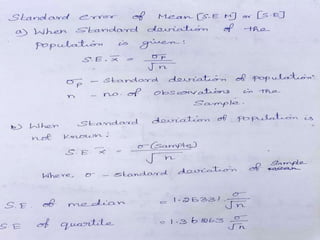 Standard Error of Mean [S.E M] or [S.E]
a) When Standard deviation of the
Population is given:
S.E. x̄ = σp / √n
σp - Standard deviation of population
n - no. of observations in the
Sample.
b) When Standard deviation of Population is
not known:
S.E x̄ = σ (Sample) / √n
Where, σ - Standard daviation of Sample
S.E of median = 1.25331 σ/√n
S.E of quartile = 1.36263 σ/√n